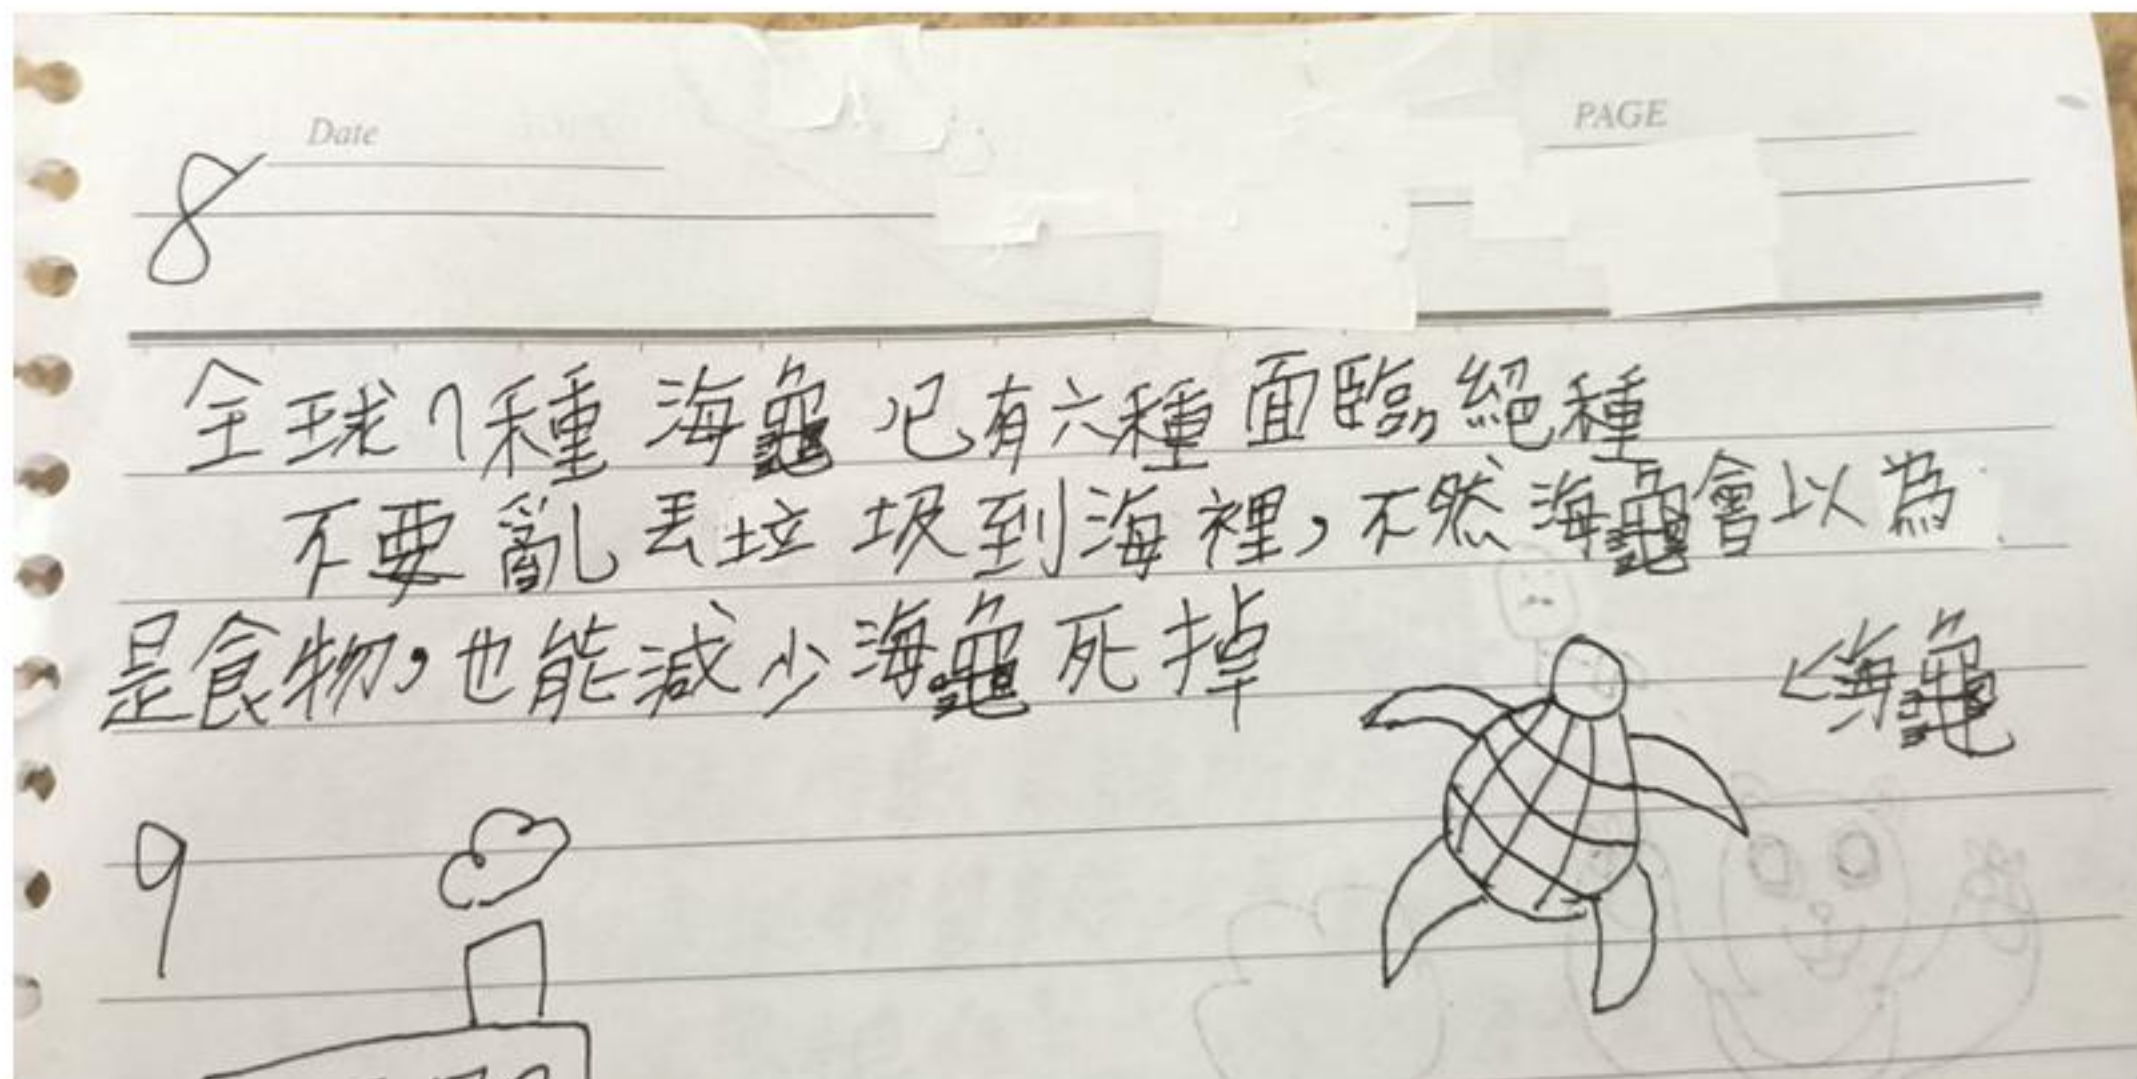 Date
PAGE
8
全球7種海龜已有六種面臨絕種
不要亂丟垃圾到海裡,不然海龜會以為
是食物,也能減少海龜死掉
←海龜
9